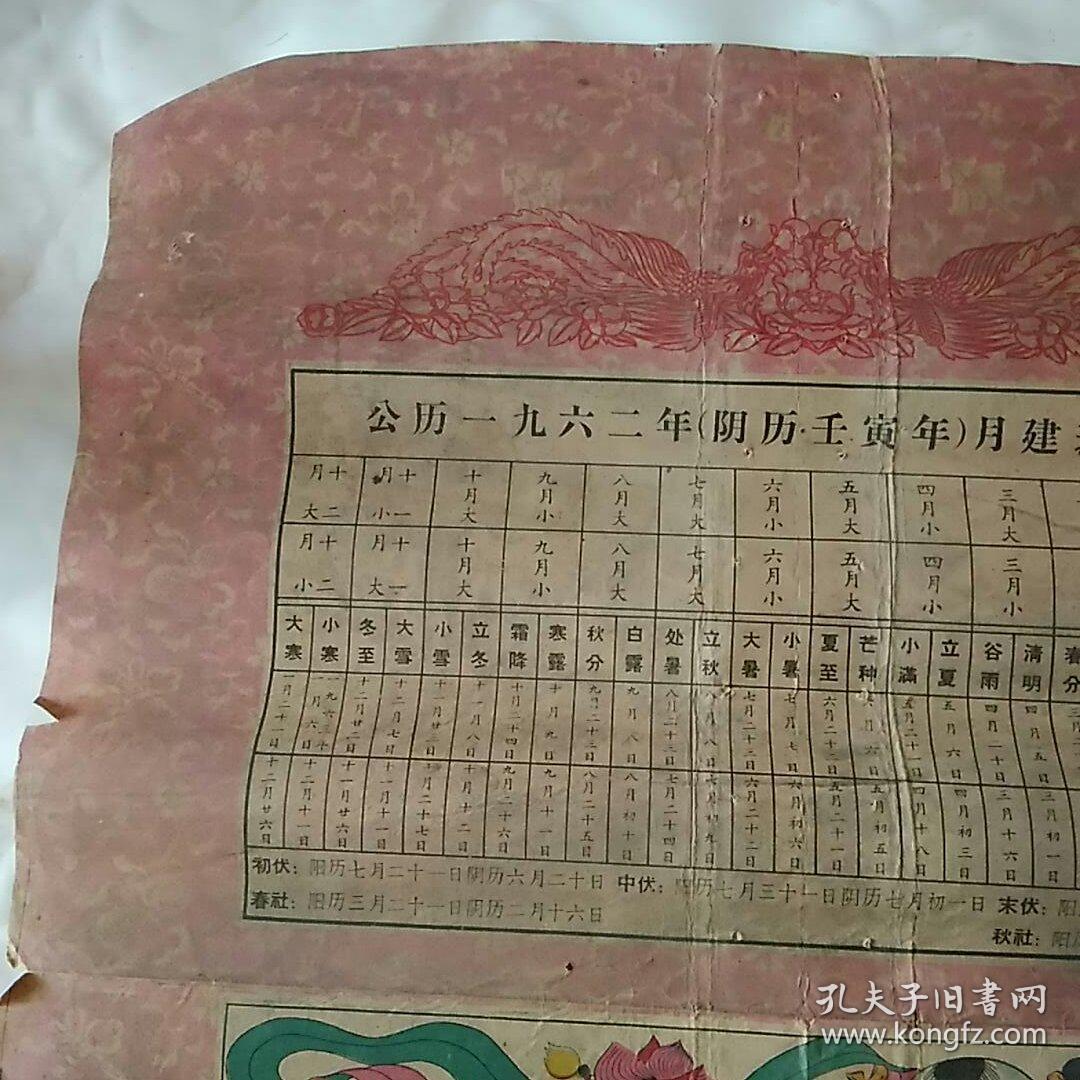 公历一九六二年(阴历·壬寅·年)月建
十二月大 十一月小 十月大 九月小 八月大 七月大 六月小 五月大 四月小 三月大
十二月小 十一月大 十月大 九月小 八月大 七月大 六月小 五月大 四月小 三月小
大寒 小寒 冬至 大雪 小雪 立冬 霜降 寒露 秋分 白露 处暑 立秋 大暑 小暑 夏至 芒种 小满 立夏 谷雨 清明 春分
一月二十一日 十二月廿二日 十二月七日 十一月廿三日 十一月八日 十月二十四日 十月九日 九月二十三日 九月八日 八月二十三日 八月八日 七月二十三日 七月七日 六月二十二日 六月六日 五月二十一日 五月六日 四月二十日 四月五日
十二月廿六日 十二月十一日 十一月廿六日 十一月十一日 十月二十七日 十月十二日 九月二十六日 九月十一日 八月二十五日 八月初十日 七月二十四日 七月初九日 六月二十二日 六月初六日 五月二十一日 五月初五日 四月十八日 四月初三日 三月十六日 三月初一日
初伏：阳历七月二十一日阴历六月二十日 中伏：阳历七月三十一日阴历七月初一日 末伏：阳
春社：阳历三月二十一日阴历二月十六日
秋社：阳历
孔夫子旧書网
www.kongfz.com